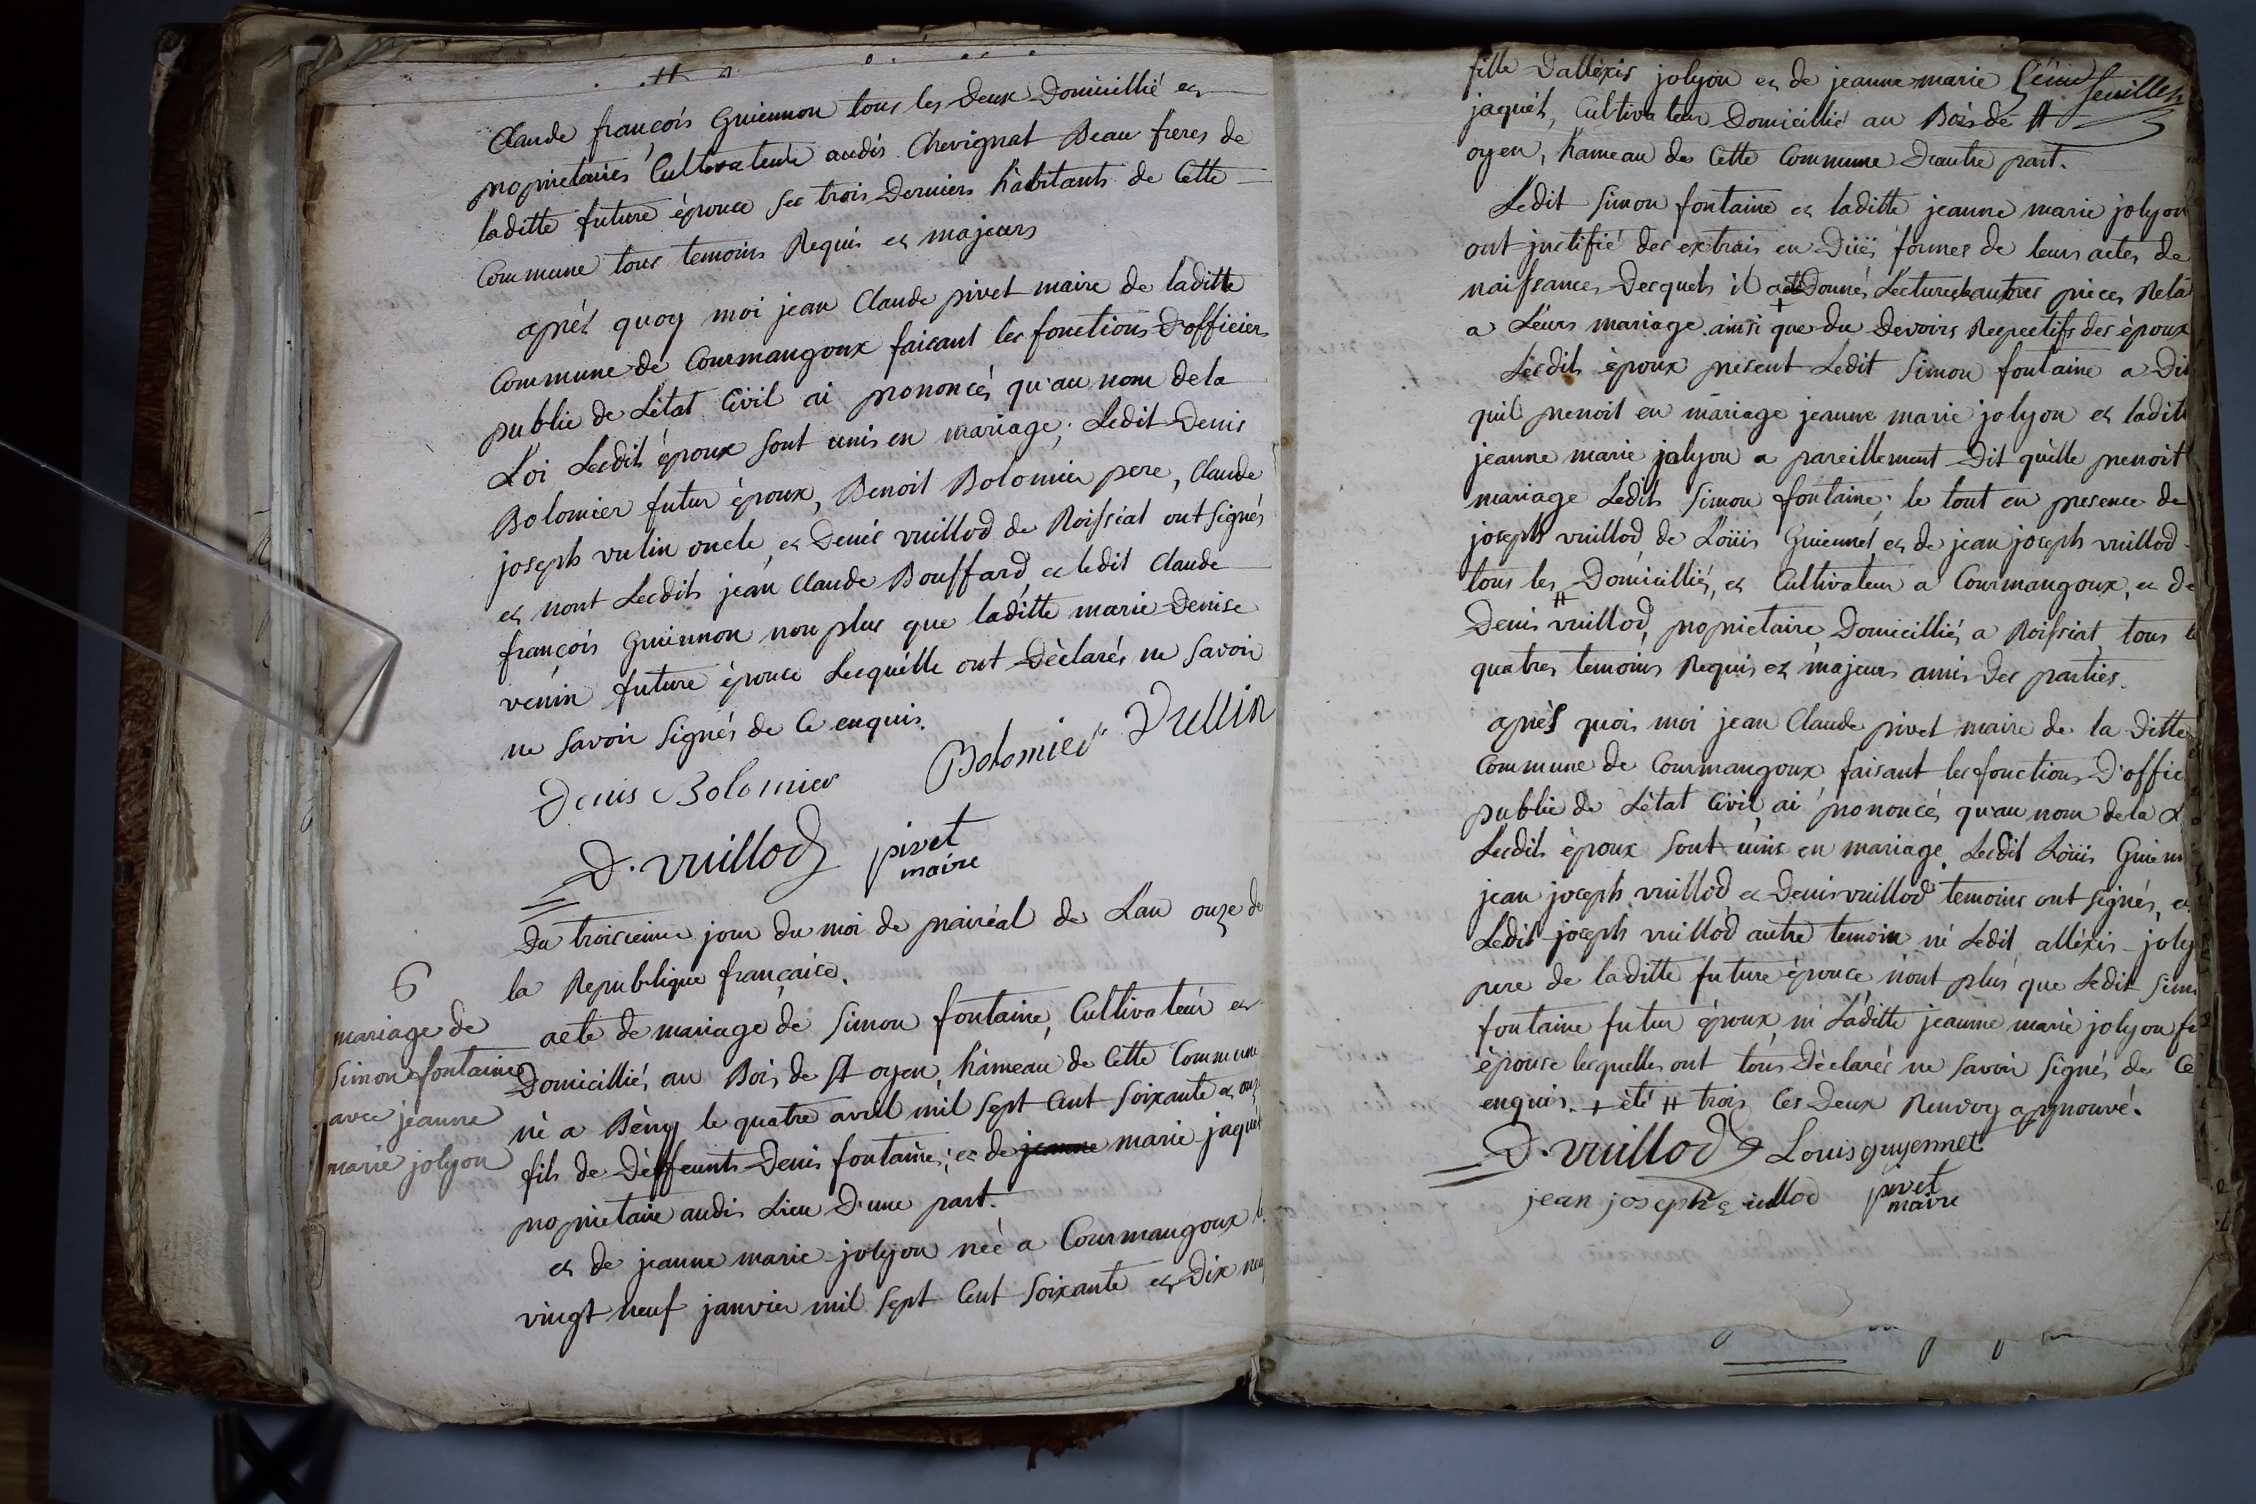 Claude françois Guiennon tous les deux Domicillié et
proprietaires Cultivateurs audis Chevignat Beau freres de
laditte future épouce les trois Derniers habitants de Cette
Commune tous temoins Requis et majeurs
aprés quoy moi jean Claude pivet maire de laditte
Commune de Courmangoux faisant les fonctions D'officiers
public de L'état Civil ai prononcés qu'au nom de la
Loi Lesdits époux sont unis en mariage; Ledit Denis
Bolomier futur époux, Benoit Bolomier pere, Claude
joseph vulin oncle et Denis vuillod de Roissiat ont signés
et nont Lesdits jean Claude Bouffard et ledit Claude
françois Guiennon non plus que laditte marie Denise
venin future épouce Lesquélle ont Déclarés ne savoir
ne savoir signés de Ce enquis.
Denis Bolomier
Bolomier
Vullin
D. vuillod
pivet
maire
Du troisieme jour du moi de prairéal de Lan onze de
la Republique française.
6
mariage de
Simon fontaine
avec jeanne
marie jolyon
acte de mariage de Simon fontaine, Cultivateur et
Domicilliés au Bois de St oyen, hameau de Cette Commune
né a Bény le quatre avril mil sept Cent soixante et onze
fils de Deffeunts Denis fontaine; et de jeanne marie jaquét
proprietaire audis Lieu D'une part.
et de jeanne marie jolyon née a Courmangoux le
vingt neuf janvier mil sept Cent soixante et Dix neuf
fille D'alléxis jolyon et de jeanne marie
feuillet
jaquét, Cultivateur Domicillié au Bois de St
oyen, hameau de Cette Commune D'autre part.
Ledit Simon fontaine et laditte jeanne marie jolyon
ont justifié des extrais en Düës formes de leurs actes de
naissances Desquels il a Donnés Lectures autres pieces Rela
a Leurs mariage ainsi que du Devoirs Respectifs des époux
Lesdits époux present Ledit Simon fontaine a Dit
quil prenoit en mariage jeanne marie jolyon et ladit
jeanne marie jolyon a pareillement Dit qu'èlle prenoit
mariage Ledit Simon fontaine; le tout en presence de
joseph vuillod de Loüis Guiennet et de jean joseph vuillod
tous les Domicilliés et Cultivateur a Courmangoux, et de
Denis vuillod, proprietaire Domicilliés a Roissiat tous le
quatres temoins Requis et majeurs amis des parties.
aprés quois moi jean Claude pivet maire de la Ditte
Commune de Courmangoux faisant les fonctions D'offic
public de L'état Civil ai prononcés qu'au nom de la L
Lesdits époux sont unis en mariage. Lesdit Loüis Guienn
jean joseph vuillod et Denis vuillod temoins ont signés, et
Ledit joseph vuillod autre temoin ni Ledit alléxis joly
pere de laditte future épouce n'ont plus que Ledit Simo
fontaine futur époux ni Laditte jeanne marie jolyon fu
épouce lesquelles ont tous Déclarés ne savoir signés de Ce
enquis. + été # trois Ces Deux Renvoy approuvé.
D. vuillod
Louis guyennet
jean joseph vuillod
pivet
maire